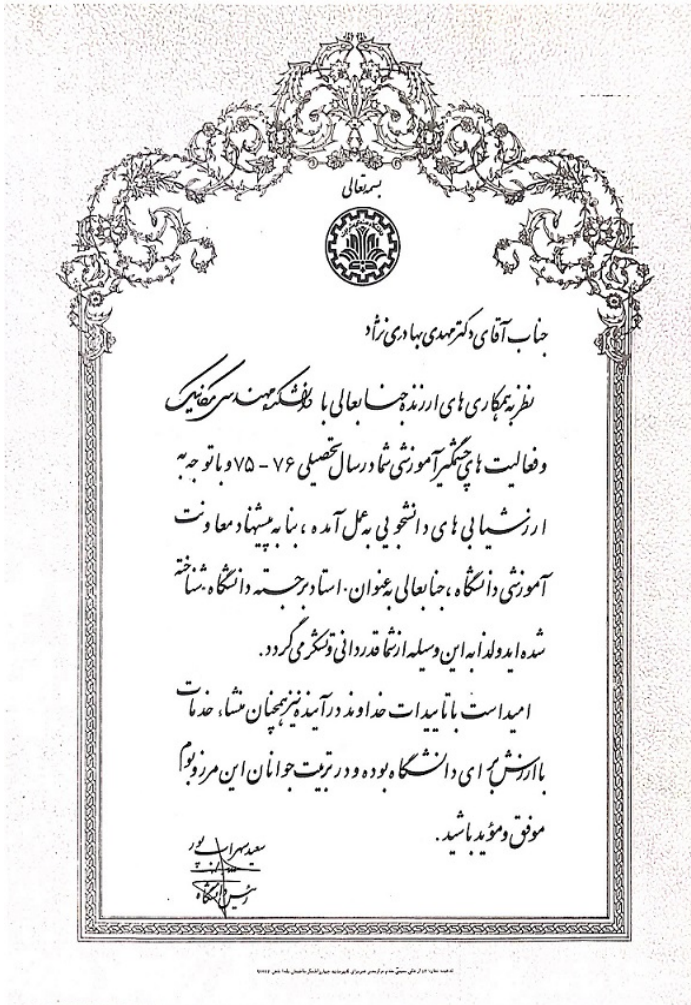 بسمه‌تعالی
جناب آقای دکتر مهدی بهادری نژاد
نظر به همکاری های ارزنده جنابعالی با دانشکده مهندسی مکانیک
و فعالیت های چشمگیر آموزشی شما در سال تحصیلی ۷۶ - ۷۵ و با توجه به
ارزشیابی های دانشجویی به عمل آمده ، بنا به پیشنهاد معاونت
آموزشی دانشگاه ، جنابعالی به عنوان استاد برجسته دانشگاه شناخته
شده اید و لذا به این وسیله از شما قدردانی و تشکر می گردد .
امید است با تاییدات خداوند در آینده نیز همچنان منشاء خدمات
با ارزش برای دانشگاه بوده و در تربیت جوانان این مرز و بوم
موفق و مؤید باشید .
سعید سهراب پور
رئیس دانشگاه